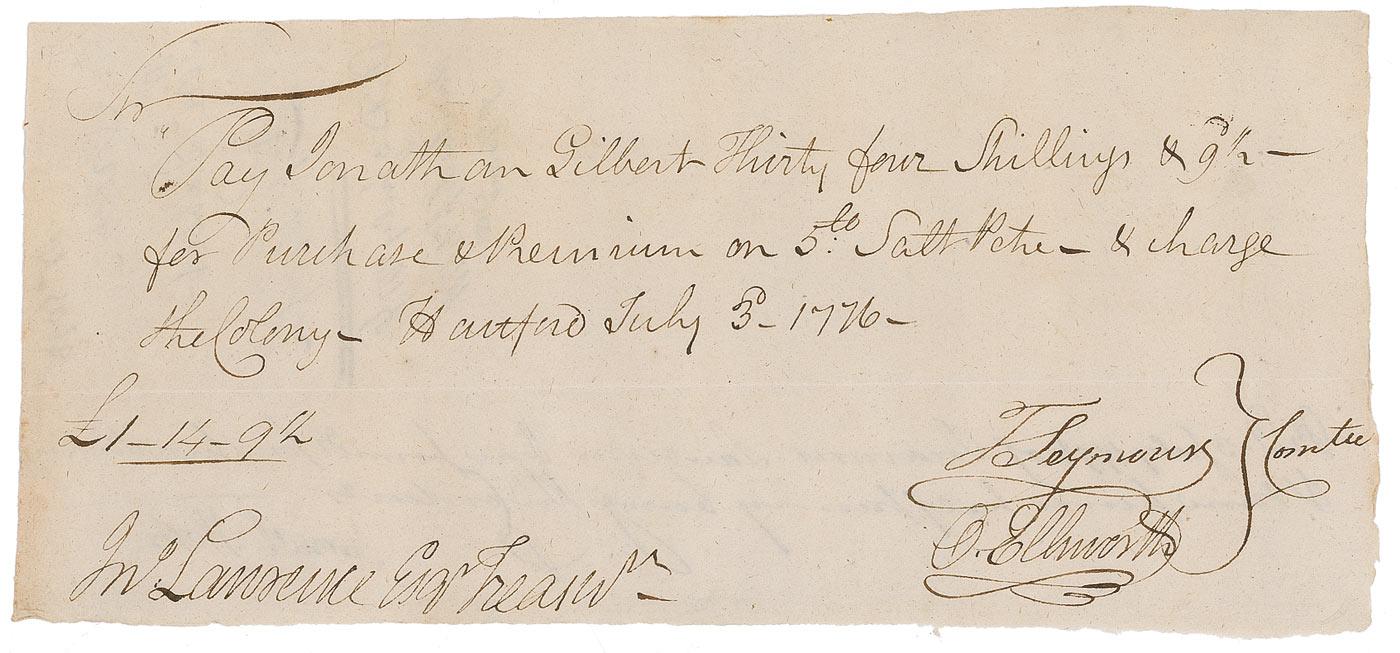 Sir
Pay Jonathan Gilbert Thirty four Shillings & 9d½ –
for Purchase & Premium on 5lb. Salt Petre – & charge
the Colony – Hartford July 3d – 1776 –
£1 – 14 – 9½
T Seymour
O. Ellsworth
Comtee
Jno. Lawrence Esqr Treasurr –